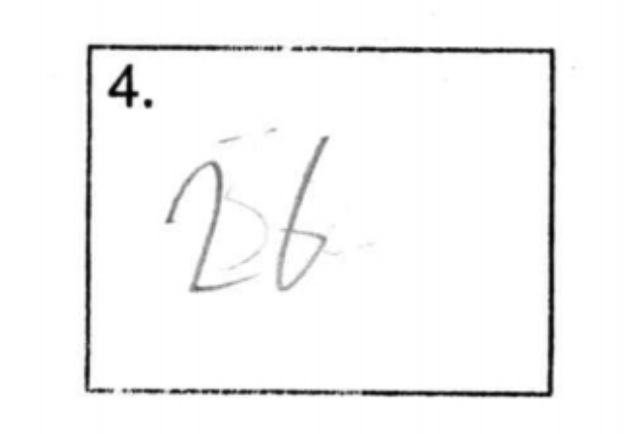 4.
26